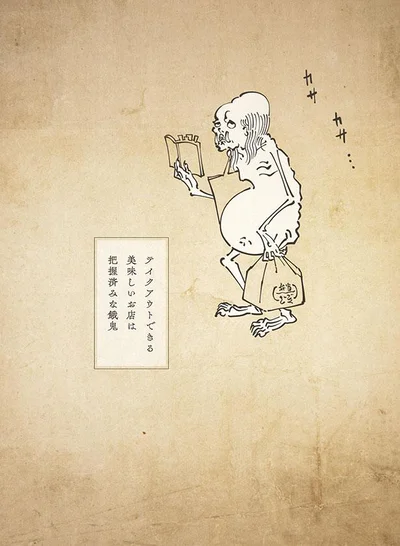 カサ
カサ…
テイクアウトできる
美味しいお店は
把握済みな餓鬼